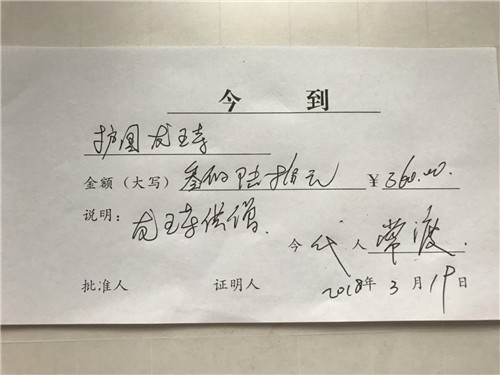 今 到
护国龙王寺
金额（大写）叁佰陆拾元 ￥360.00
说明：龙王寺供僧.
今代人 常渡.
批准人 证明人 2018年3月19日